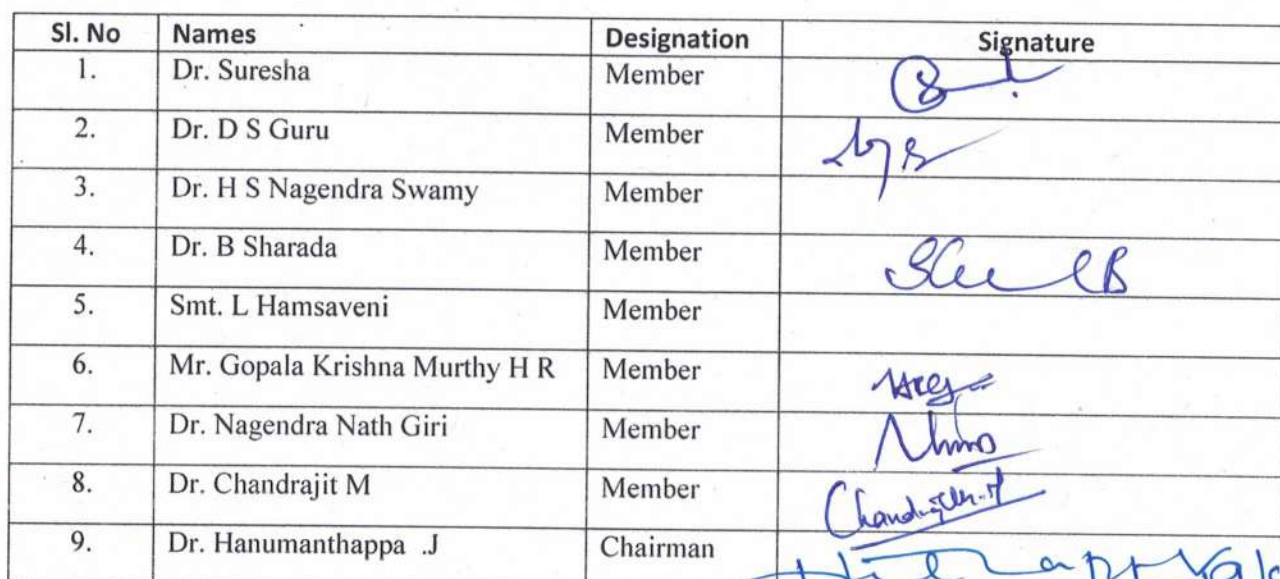 Sl. No Names Designation Signature
1. Dr. Suresha Member
2. Dr. D S Guru Member
3. Dr. H S Nagendra Swamy Member
4. Dr. B Sharada Member
5. Smt. L Hamsaveni Member
6. Mr. Gopala Krishna Murthy H R Member
7. Dr. Nagendra Nath Giri Member
8. Dr. Chandrajit M Member
9. Dr. Hanumanthappa .J Chairman